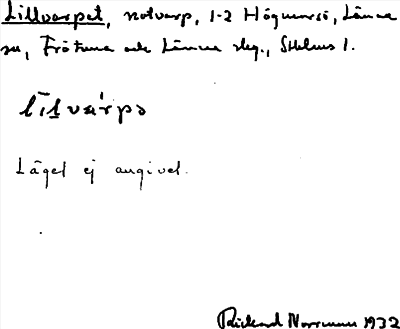 Lillvarpet, notvarp, 1-2 Högmarsö, Länna
sn, Frötuna och Länna skg., Sthlms l.
lìlvarpə
Läget ej angivet.
Rickard Norrman 1932